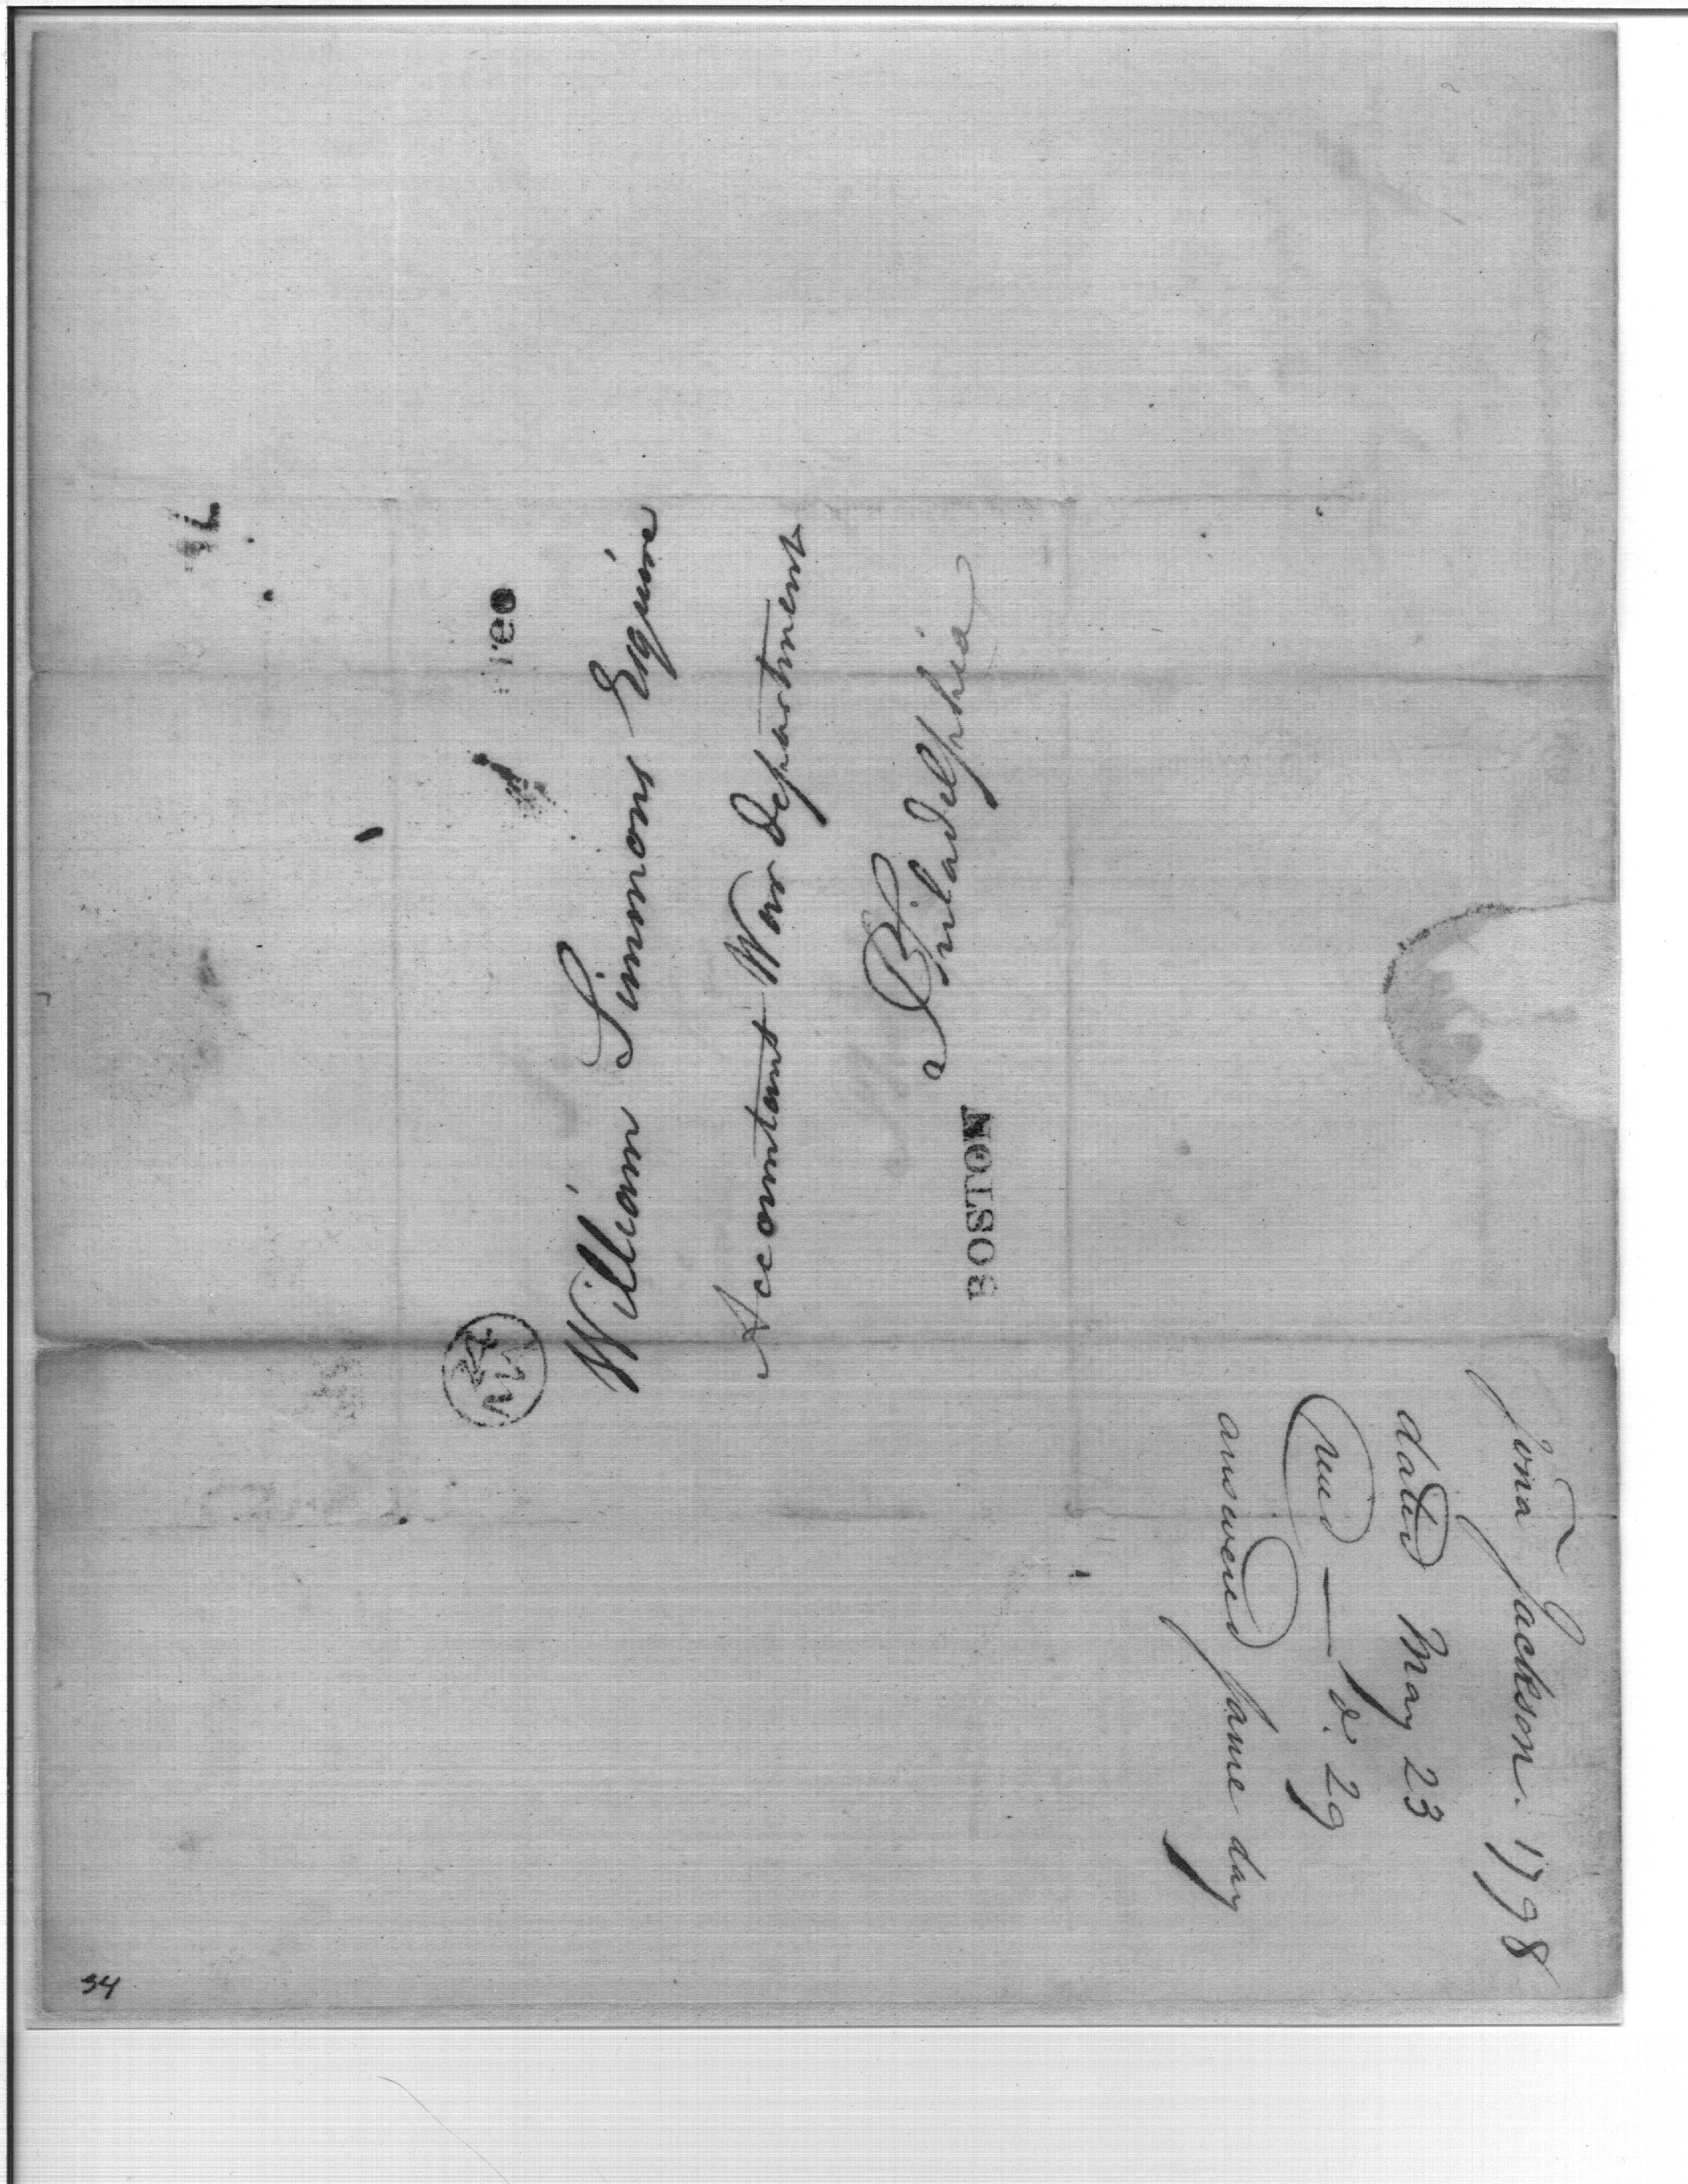 William Simmons Esquire
Accountant War Department
Philadelphia
BOSTON
Jona Jackson. 1798
dated May 23
recd — do. 29
answered same day
34